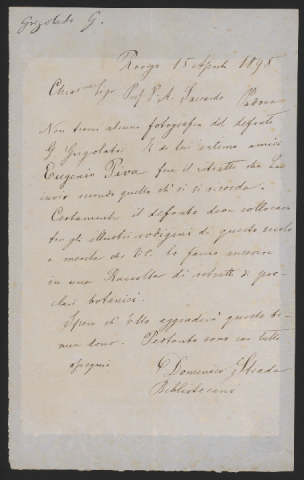 Grigolato G.
Rovigo 15 Aprile 1898
Chiar.mo Sigr Prof P. A. Saccardo Padova
Non trovo alcuna fotografia del defunto
G Grigolato. Il di lui intimo amico
Eugenio Piva fece il ritratto che Le
invio secondo quello ch'ei si ricorda.
Certamente il defunto deve collocarsi
tra gli illustri rodigini di questo secolo
e merita che V.S. lo faccia
in una Raccolta di ritratti di pre-
clari botanici.
Spero ch'Ella aggradirà questo te-
nue dono. Pertanto sono con tutto
ossequio
Domenico Strada
Bibliotecario